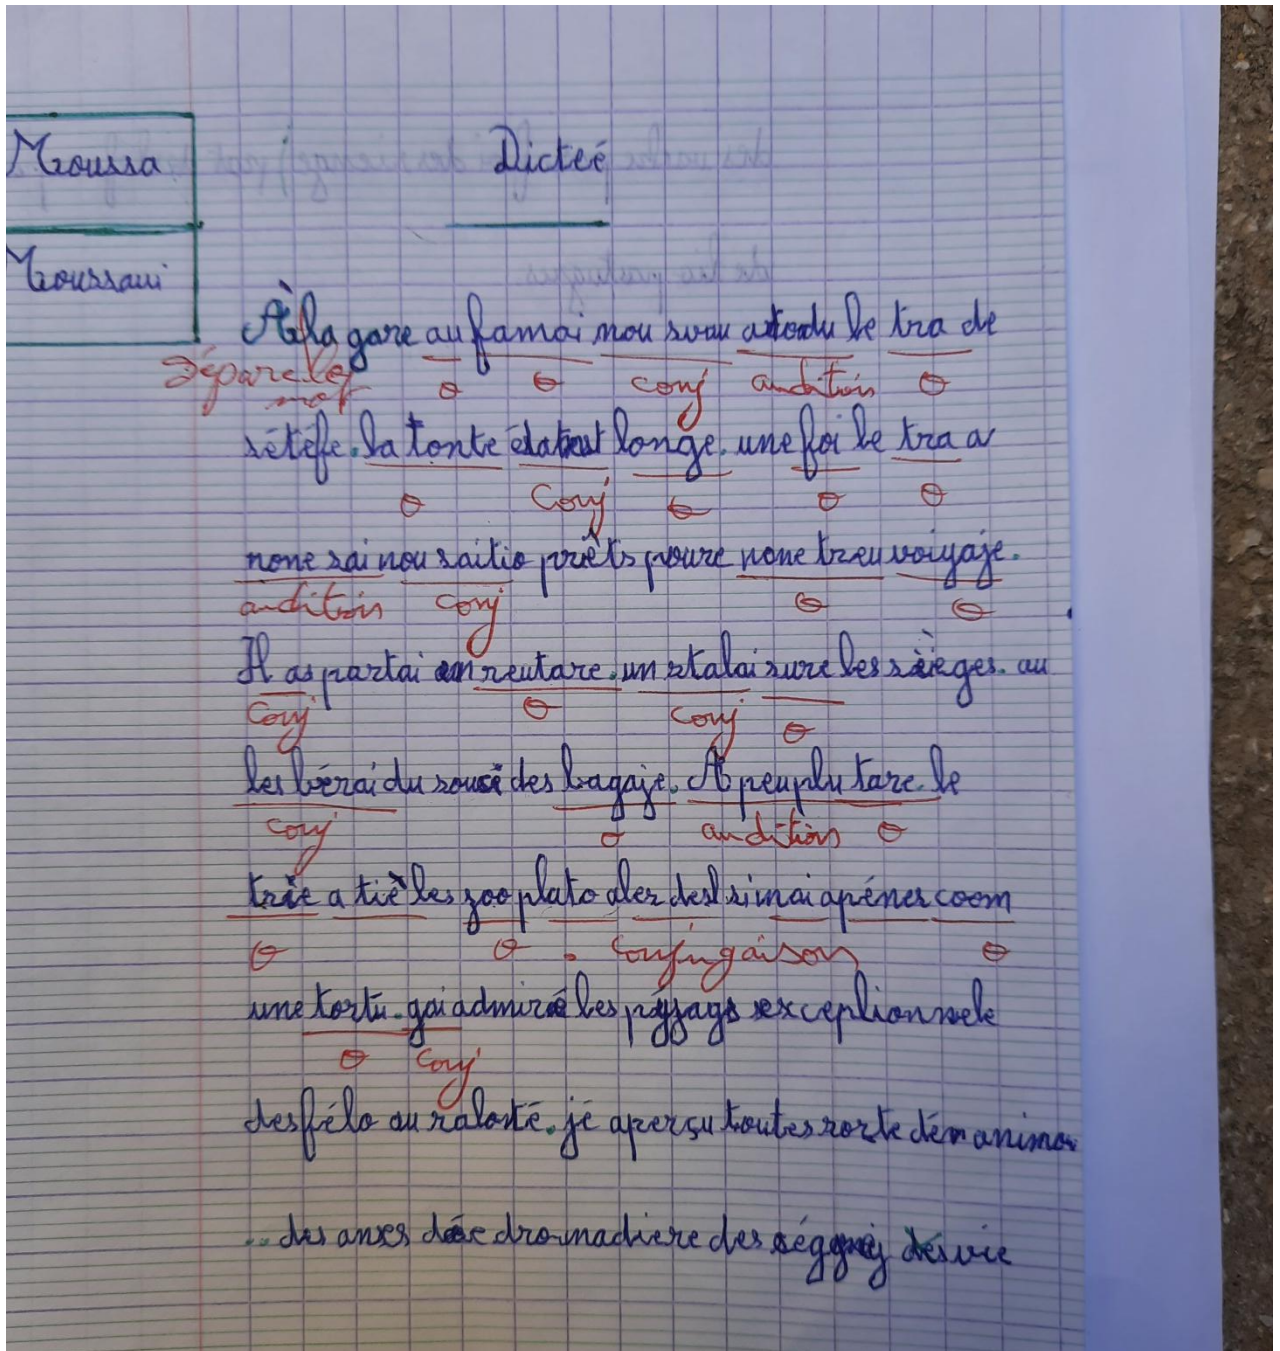 Moussa
Dicteé
Moussaui
À la gare au famai nou svau atodu le tra de
Sépare les mot θ θ conj audition θ
sétéfe. la tonte étatest longe. une foi le tra a
θ Conj θ θ θ
none sai nou saitio prêts poure none treu voiyaje.
audition conj θ θ
Il as partai en reutare. un stalai sure les sièges. au
Conj θ conj θ
les bérai du souci des bagaje. A peuplu tare. le
conj θ audition θ
trie a tiè les zoo plato aler des si mai apéner coom
θ θ conjugaison θ
une tortu. gai admiré les paysags exceptionnele
θ Conj
des félo au ralonté. jé aperçu toutes sorte dén animau
des anes dée dromadiere des vie